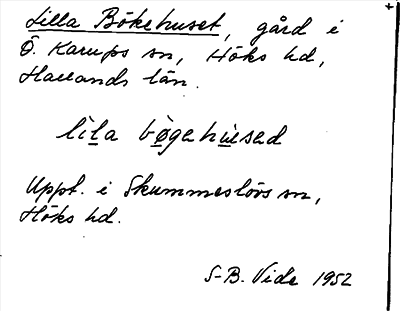 Lilla Bökehuset, gård i
Ö. Karups sn, Höks hd,
Hallands län.
lila bøgehused
Uppt. i Skummeslövs sn,
Höks hd.
S-B. Vide 1952